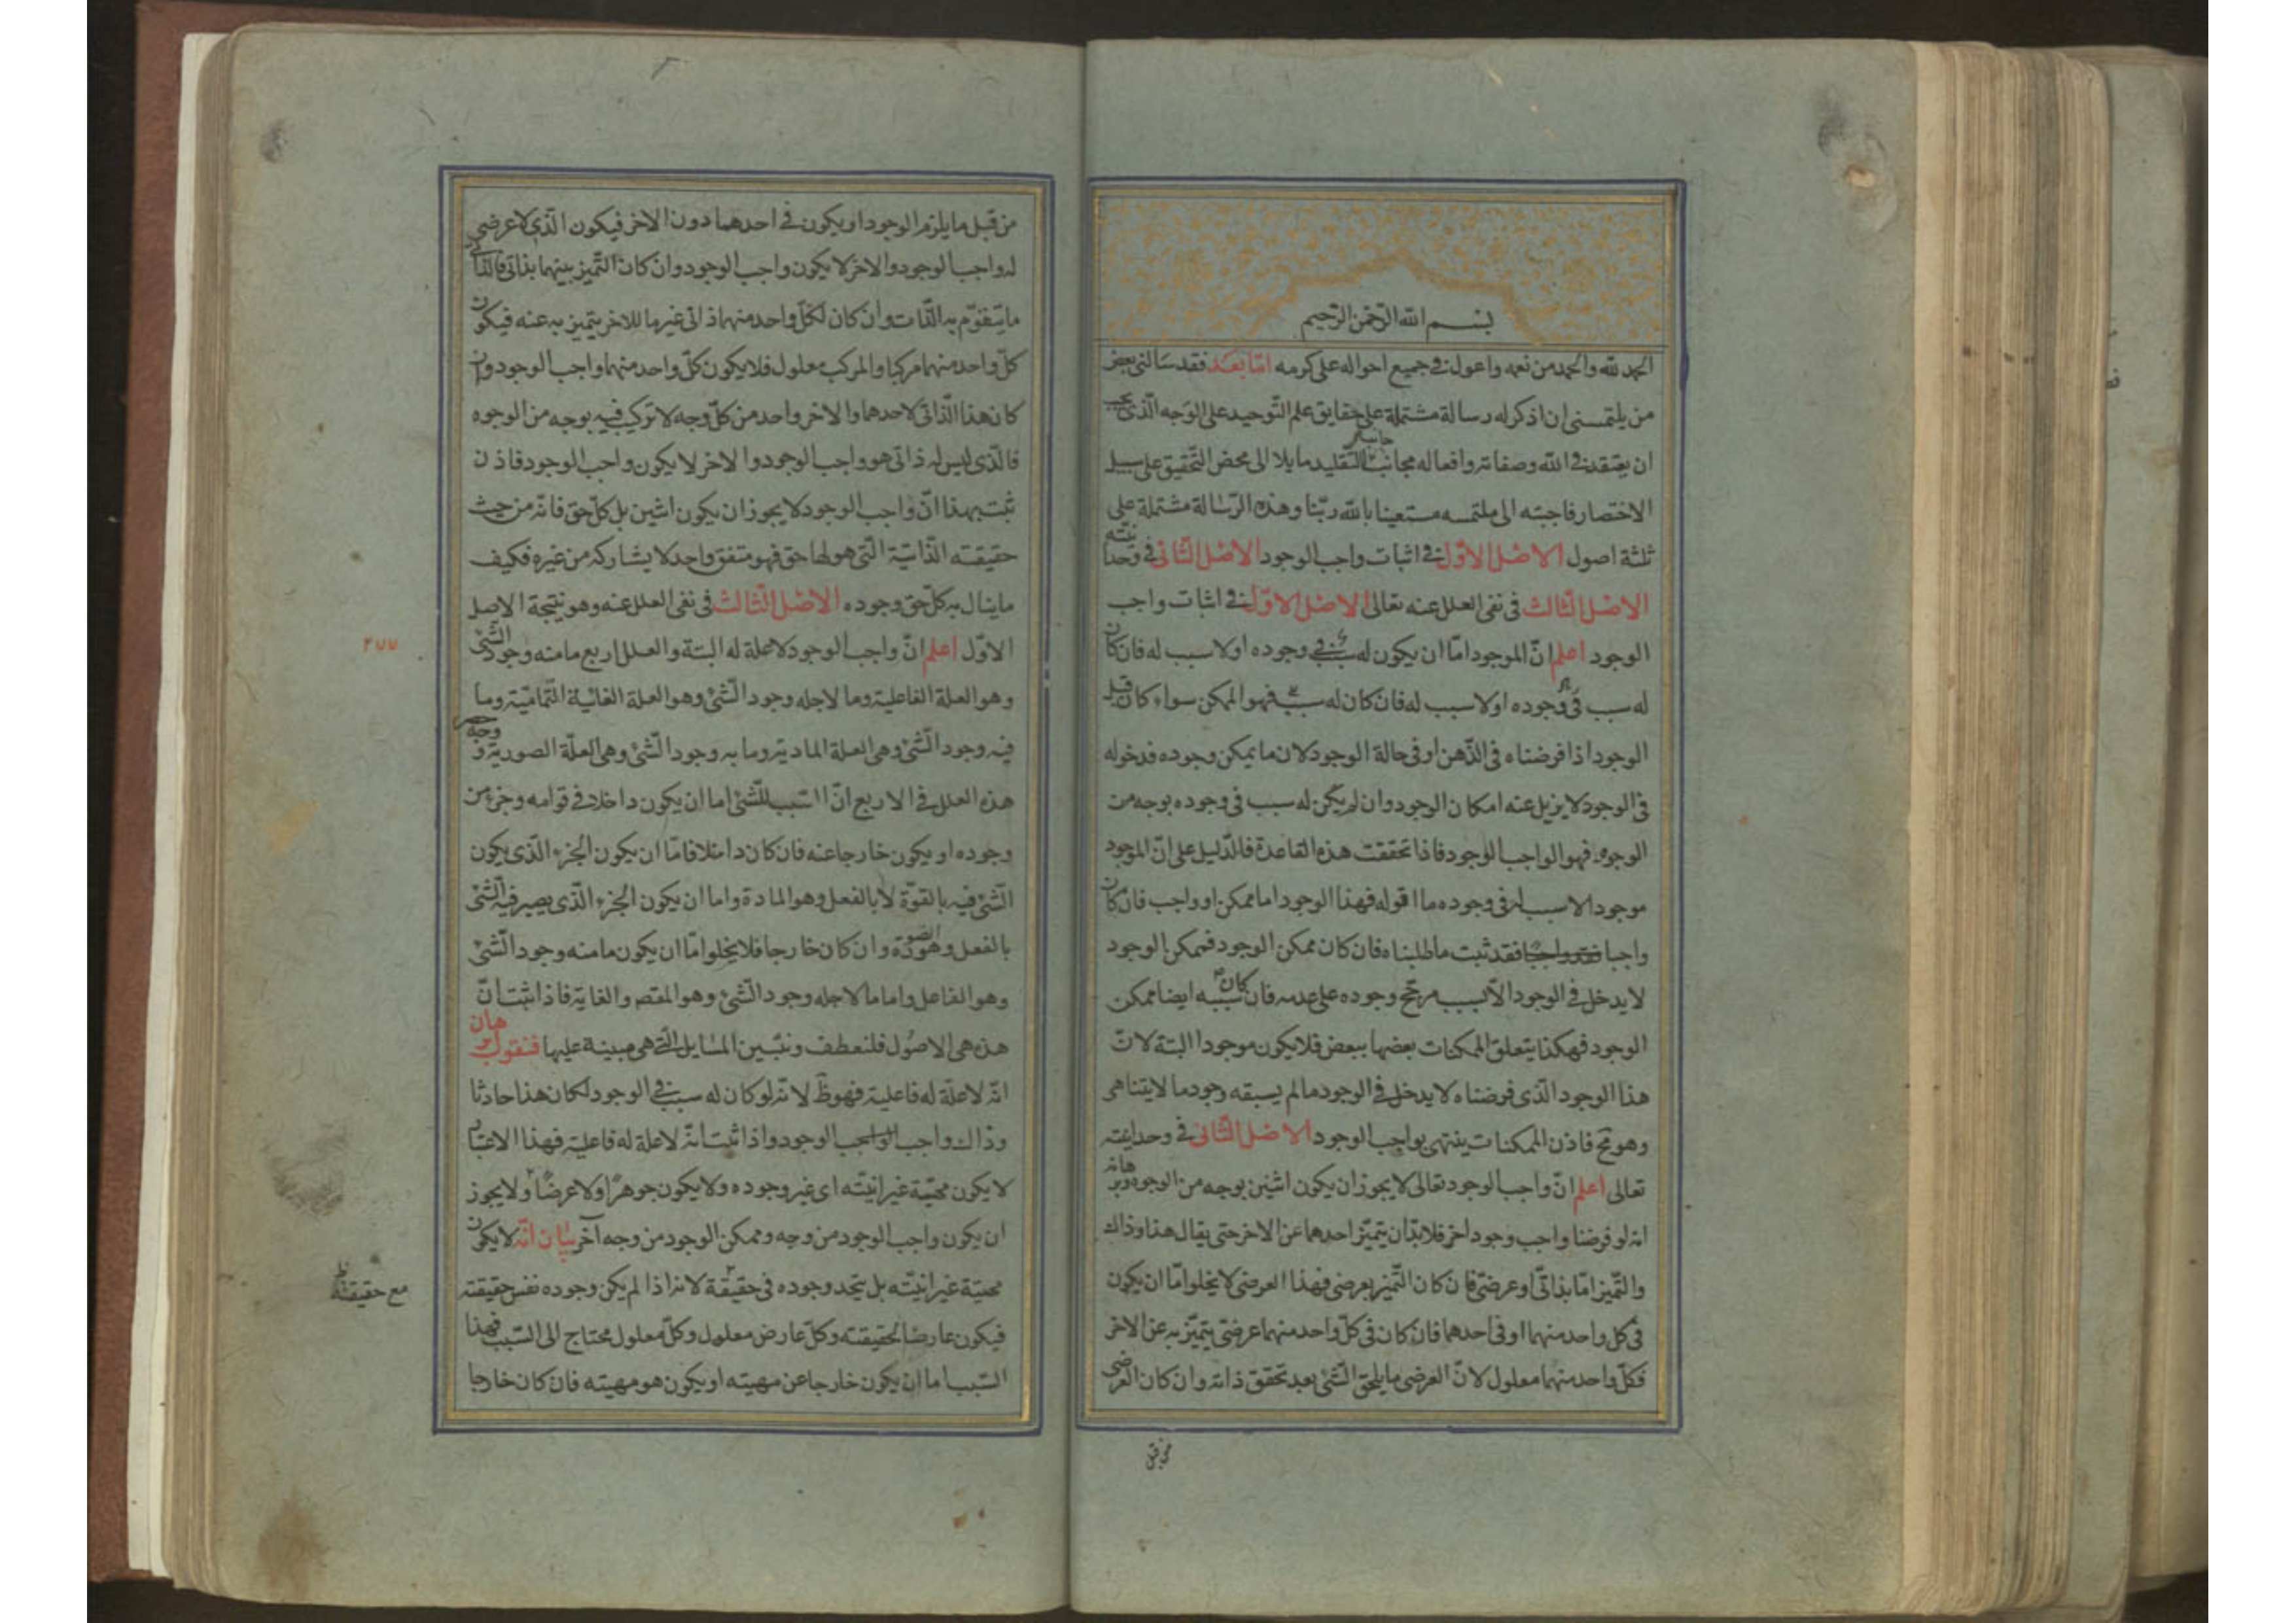 بسم الله الرحمن الرحيم
الحمد لله والحمد من نعمه واعول فى جميع احواله على كرمه امّا بَعْد فقد سَالنى بعض
من يلتمسنى ان اذكر له رسالة مشتملة على حقايق علم التّوحيد على الوَجه الّذى يجب
ان يعتقد فى الله وصفاته وافعاله مجانب التّقليد مايلا الى محض التّحقيق على سبيل
الاختصار فاجبته الى ملتمسه مستعينا بالله ربّنا وهذه الرّسالة مشتملة على
ثلثة اصول الاصْل الاوّل فى اثبات واجب الوجود الاصْل الثّانى فى وحدانيّته
الاصْل الثّالث فى نفى العلل عنه تعالى الاصْل الاوّل فى اثبات واجب
الوجود اعلم انّ الموجود امّا ان يكون له سبب فى وجوده او لا سبب له فان كان
له سبب فى وجوده او لا سبب له فان كان له سبب فهو الممكن سواء كان قبل
الوجود اذا فرضناه فى الذّهن او فى حالة الوجود لان ما يمكن وجوده فدخوله
فى الوجود لا يزيل عنه امكان الوجود وان لم يكن له سبب فى وجوده بوجه من
الوجوه فهو الواجب الوجود فاذا تحققت هذه القاعدة فالدّليل على انّ الموجود
موجود الا سبب له فى وجوده ما اقوله فهذا الوجود اما ممكن او واجب فان كان
واجبا فقد واجبا فقد ثبت ما طلبناه فان كان ممكن الوجود فممكن الوجود
لا يدخل فى الوجود الّا بسبب مرجّح وجوده على عدمه فان كان سببه ايضا ممكن
الوجود فهكذا يتعلق الممكنات بعضها ببعض فلا يكون موجودا البتة لانّ
هذا الوجود الّذى فرضناه لا يدخل فى الوجود ما لم يسبقه وجود ما لا يتناهى
وهو مح فاذن الممكنات ينتهى بواجب الوجود الاصْل الثّانى فى وحدانيّته
تعالى اعلم انّ واجب الوجود تعالى لا يجوز ان يكون اثنين بوجه من الوجوه وبرهانه
انه لو فرضنا واجب وجود اخر فلا بدّ ان يتميّز احدهما عن الاخر حتى يقال هذا وذاك
والتّميز امّا بذاتّى او عرضىّ فان كان التّميز بعرضى فهذا العرضى لا يخلوا امّا ان يكون
فى كل واحد منهما او فى احدهما فان كان فى كلّ واحد منهما عرضىّ يتميّز به عن الاخر
فكلّ واحد منهما معلول لانّ العرضى ما يلحق الشّئ بعد تحقق ذاته وان كان العرضى
من قبل
من قبل ما يلزم الوجود او يكون فى احدهما دون الاخر فيكون الّذى لا عرضى
له واجب الوجود والاخر لا يكون واجب الوجود وان كان التّميز بينهما بذاتى فالذاتى
ما يتقوّم به الذّات وان كان لكلّ واحد منهما ذاتى غير ما للاخر يتميز به عنه فيكون
كلّ واحد منهما مركبا والمركب معلول فلا يكون كلّ واحد منهما واجب الوجود وان
كان هذا الذّاتى لاحدهما والاخر واحد من كلّ وجه لا تركيب فيه بوجه من الوجوه
فالّذى ليس له ذاتى هو واجب الوجود والاخر لا يكون واجب الوجود فاذن
ثبت بهذا انّ واجب الوجود لا يجوز ان يكون اثنين بل كلّ حق فانّه من حيث
حقيقته الذّاتيّة الّتى هو لها حق فهو متفق واحد لا يشاركه من غيره فكيف
ما ينال به كلّ حق وجوده الاصْل الثّالث فى نفى العلل عنه وهو نتيجة الاصل
الاوّل اعلم انّ واجب الوجود لا علة له البتة والعلل اربع ما منه وجود الشّئ
وهو العلة الفاعلية وما لاجله وجود الشّئ وهو العلة الغائية التّماميّة وما
فيه وجود الشّئ وهى العلة المادية وما به وجود الشّئ وهى العلّة الصورية ووجه حصر
هذه العلل فى الاربع انّ السّبب للشّئ اما ان يكون داخلا فى قوامه وجزء من
وجوده او يكون خارجا عنه فان كان داخلا فامّا ان يكون الجزء الّذى يكون
الشّئ فيه بالقوّة لا بالفعل وهو المادة واما ان يكون الجزء الّذى يصير فيه الشّئ
بالفعل وهو الصورة وان كان خارجا فلا يخلوا امّا ان يكون ما منه وجود الشّئ
وهو الفاعل واما ما لاجله وجود الشّئ وهو المقصد والغاية فاذا ثبت انّ
هذه هى الاصُول فلنعطف ونبيّن المسايل الّتى هى مبينة عليها فنقول برهان
انّه لا علّة له فاعلية فهو ظ لانّه لو كان له سبب فى الوجود لكان هذا حادثا
وذاك واجب الوجود واذا ثبت انّه لا علة له فاعلية فهذا الاعتبار
لا يكون مهيّة غير انيّته اى غير وجوده ولا يكون جوهرًا ولا عرضًا ولا يجوز
ان يكون واجب الوجود من وجه وممكن الوجود من وجه آخر بيَان انّه لا يكون
مهيّة غير انيّته بل يتحد وجوده فى حقيقة لانه اذا لم يكن وجوده نفس حقيقته
فيكون عارضا لحقيقته وكلّ عارض معلول وكلّ معلول محتاج الى السّبب فهذا
السّبب اما ان يكون خارجا عن مهيته او يكون هو مهيته فان كان خارجا
مع حقيقته
٢٧٧